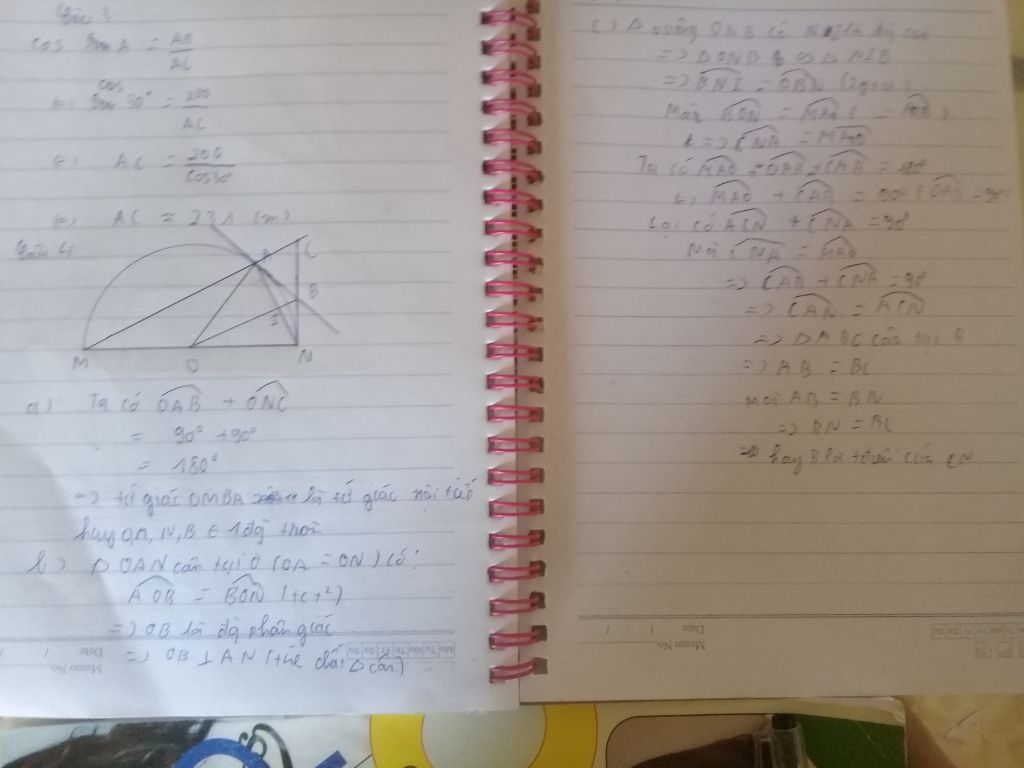 Bài 3
cos A = AB/AC
⇔ cos 30° = 200/AC
⇔ AC = 200/cos30°
⇔ AC ≈ 231 (m)
Bài 4
C
B
I
M
O
N
a) Ta có OAB + ONC
= 90° + 90°
= 180°
=> tứ giác ONBA là tứ giác nội tiếp
hay O,A,N,B ∈ 1 đg tròn
b) Δ OAN cân tại O (OA = ON) có:
AOB = BON (t/c t²)
=> OB là đg phân giác
=> OB ⊥ AN (t/c Δ cân)
Memo No.
Date / /
Mo Tu We Th Fr Sa Su
c) Δ vuông ONB có NI là đg cao
=> Δ ONB ∽ Δ NIB
=> BNI = OBN (2 góc)
Mà BON = MAO ( = AOB)
=> CNA = MAO
Ta có MAO + OAB + CAB = 180°
⇔ MAO + CAB = 90° (OAB = 90°)
Lại có ACN + CNA = 90°
Mà CNA = MAO
=> CAB + CNA = 90°
=> CAN = ACN
=> Δ ABC cân tại B
=> AB = BC
mà AB = BN
=> BN = BC
=> hay B là tđiểm của CN
Memo No.
Date / /